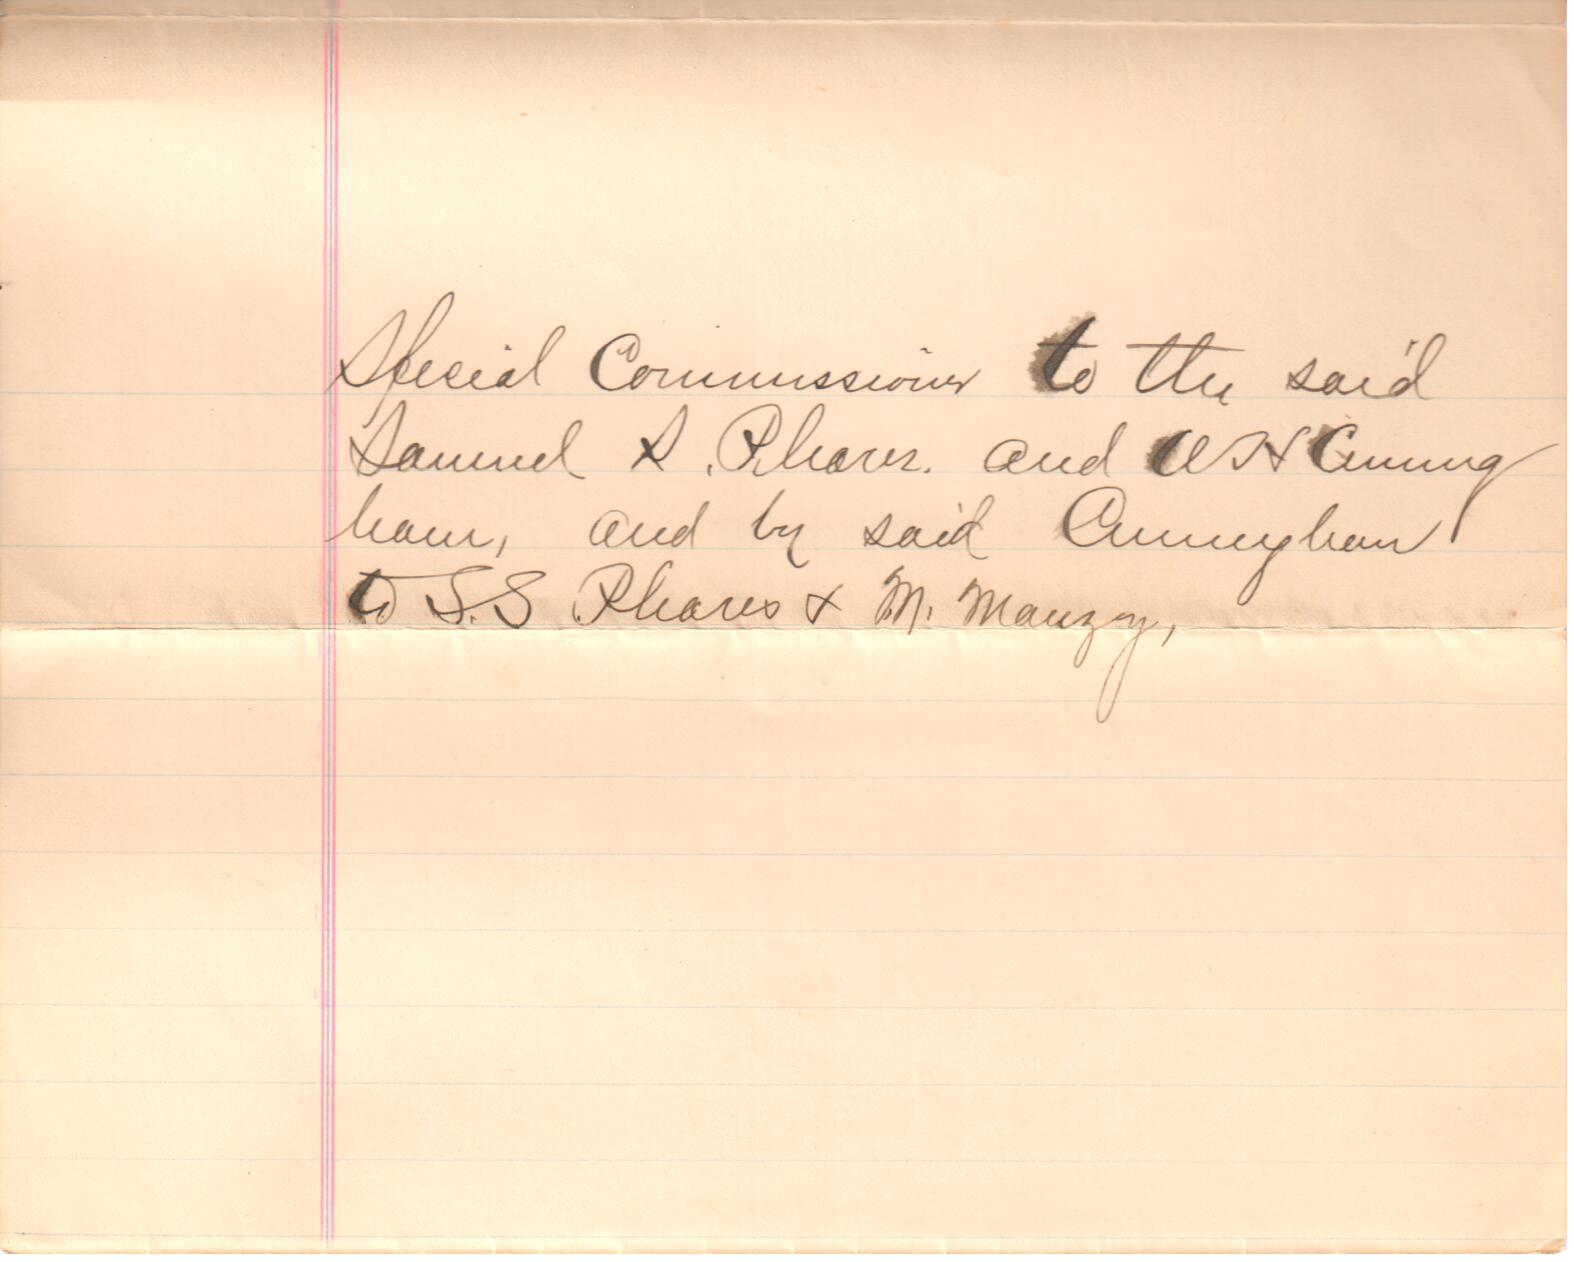 Special Commissioner to the said
Samuel S. Phares. and W H Cunning
ham, and by said Cunningham
to S. S Phares & M. Mauzy,